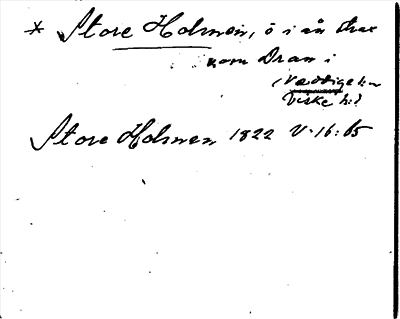 * Store Holmen, ö i ån strax
som Dran i
Veddige sn
Viske hd
Store Holmen 1822 V·16:65